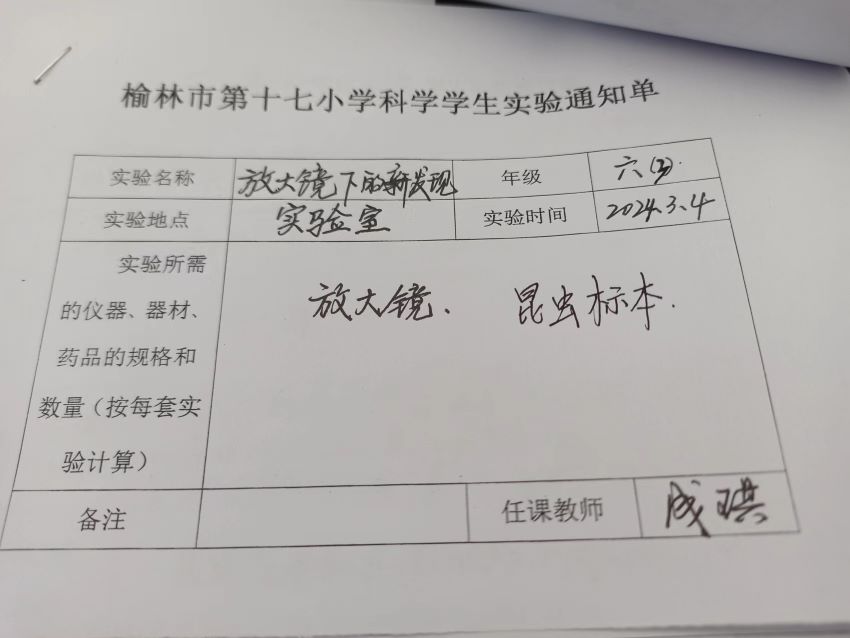 榆林市第十七小学科学学生实验通知单
实验名称 放大镜下的新发现 年级 六(3)
实验地点 实验室 实验时间 2024.3.4
实验所需
的仪器、器材、
药品的规格和
数量(按每套实
验计算)
放大镜、 昆虫标本.
备注 任课教师 成琪